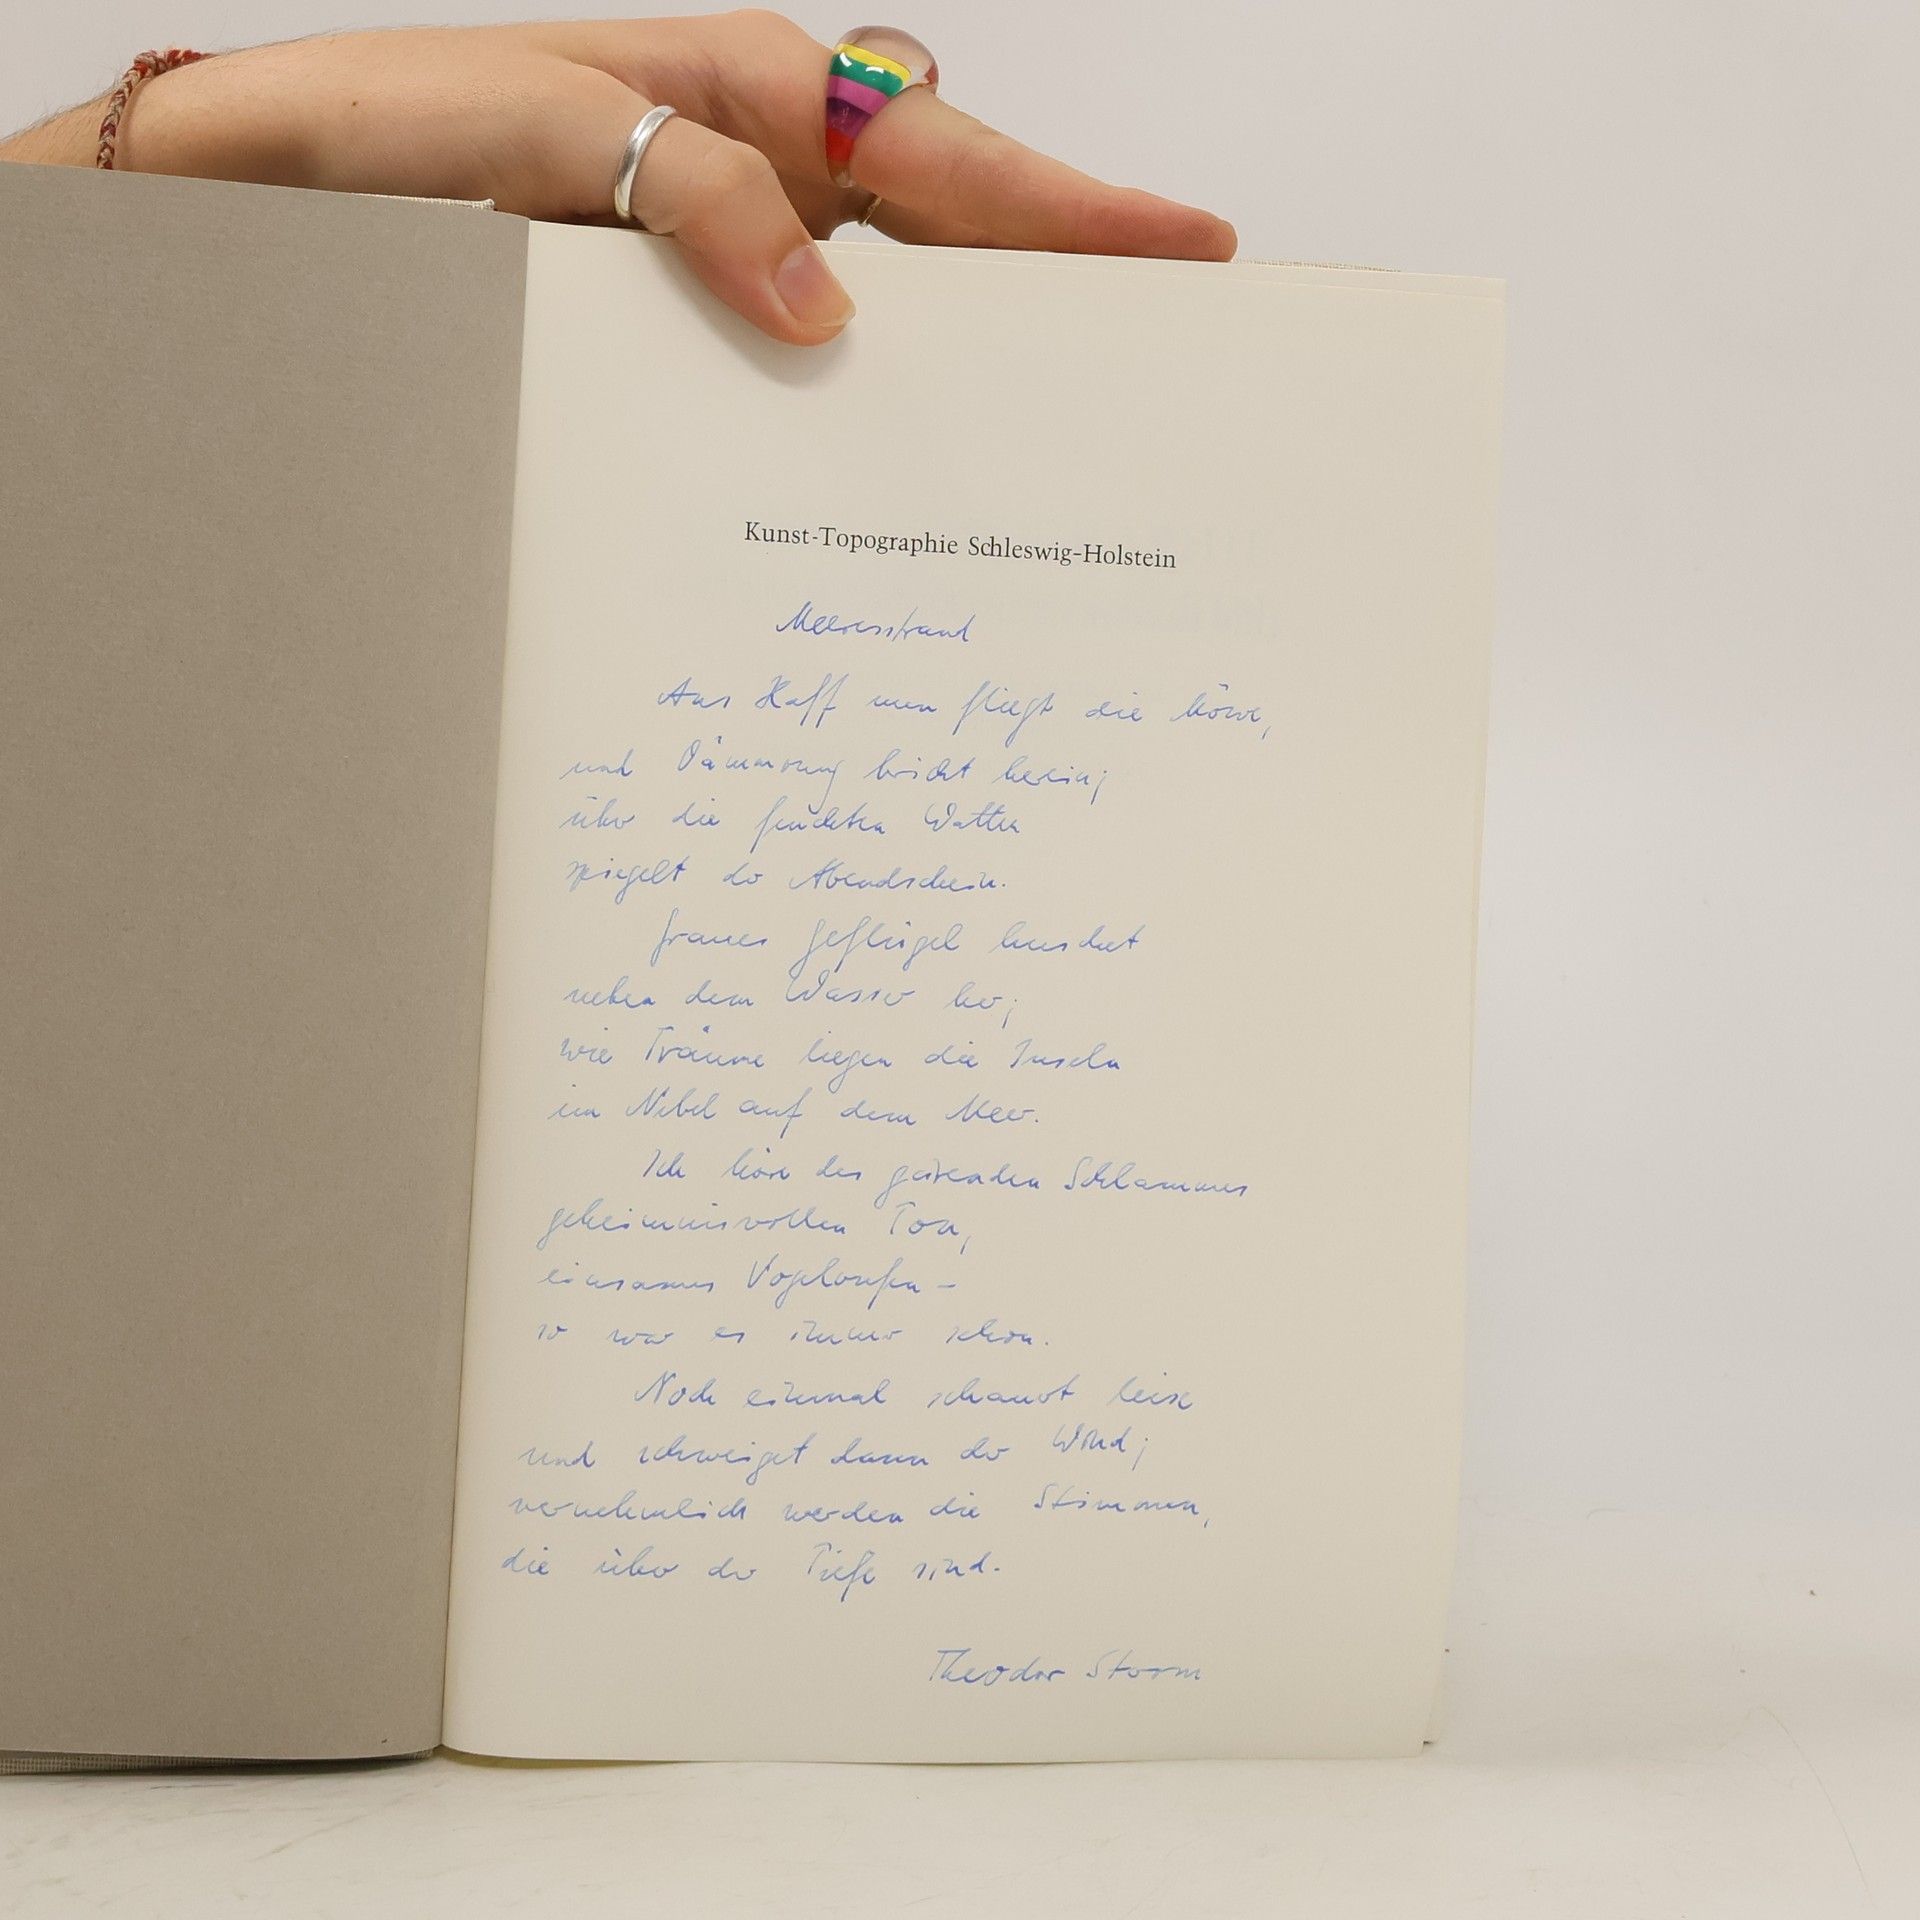 Kunst-Topographie Schleswig-Holstein
Meeresstrand
Ans Haff nun fliegt die Möwe,
und Dämmrung bricht herein;
über die feuchten Watten
spiegelt der Abendschein.
Graues Geflügel huschet
neben dem Wasser her;
wie Träume liegen die Inseln
im Nebel auf dem Meer.
Ich höre des gärenden Schlammes
geheimnisvollen Ton,
einsames Vogelrufen –
so war es immer schon.
Noch einmal schauert leise
und schweiget dann der Wind;
vernehmlich werden die Stimmen,
die über der Tiefe sind.
Theodor Storm